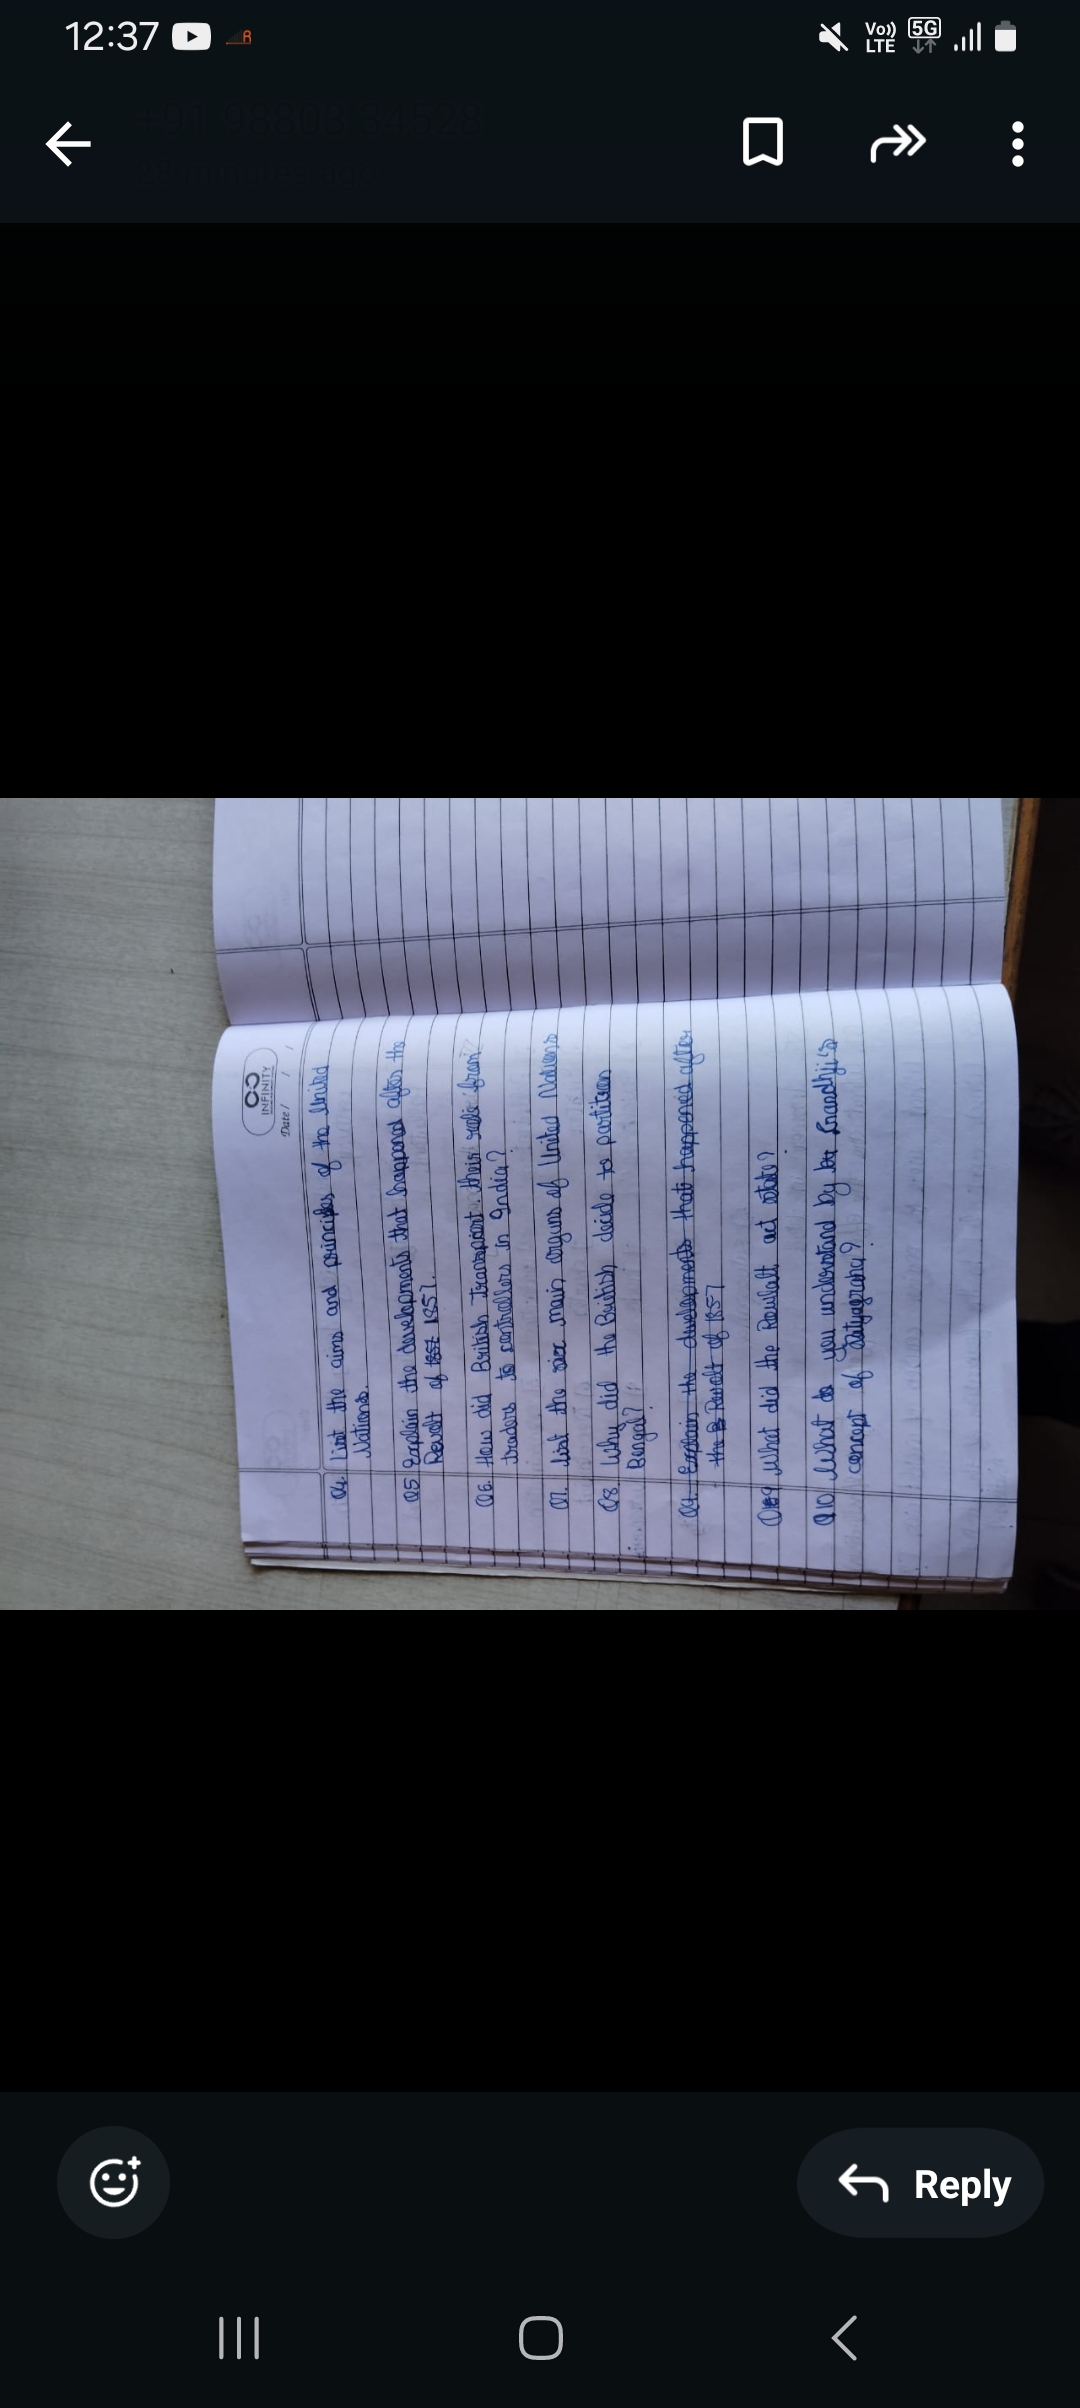 12:37
Vo)) LTE 5G
INFINITY
Date / / /
Q4. List the aims and principles of the United
Nations.
Q5 Explain the developments that happened after the
Revolt of 1857 1857.
Q6. How did British transport their role from
traders to controllers in India?
Q7. List the six main organs of United Nations
Q8 Why did the British decide to partition
Bengal?
Q9. Explain the developments that happened after
the B Revolt of 1857
Q9 What did the Rowlatt act state?
Q10 What do you understand by by Gnaedhji's
concept of Satyagraha?
Reply